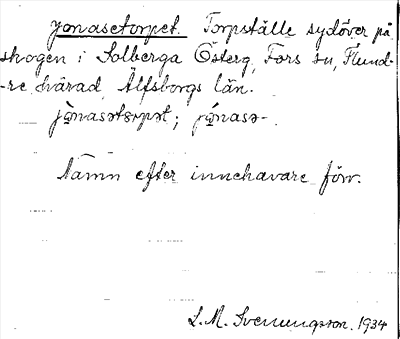 Jonasetorpet. Torpställe sydöver på
skogen i Solberga Österg, Fors sn, Flund-
-re härad, Älfsborgs län.
jònasətɷrpət; jónasə-
Namn efter innehavare förr.
L. M. Svenungsson. 1934